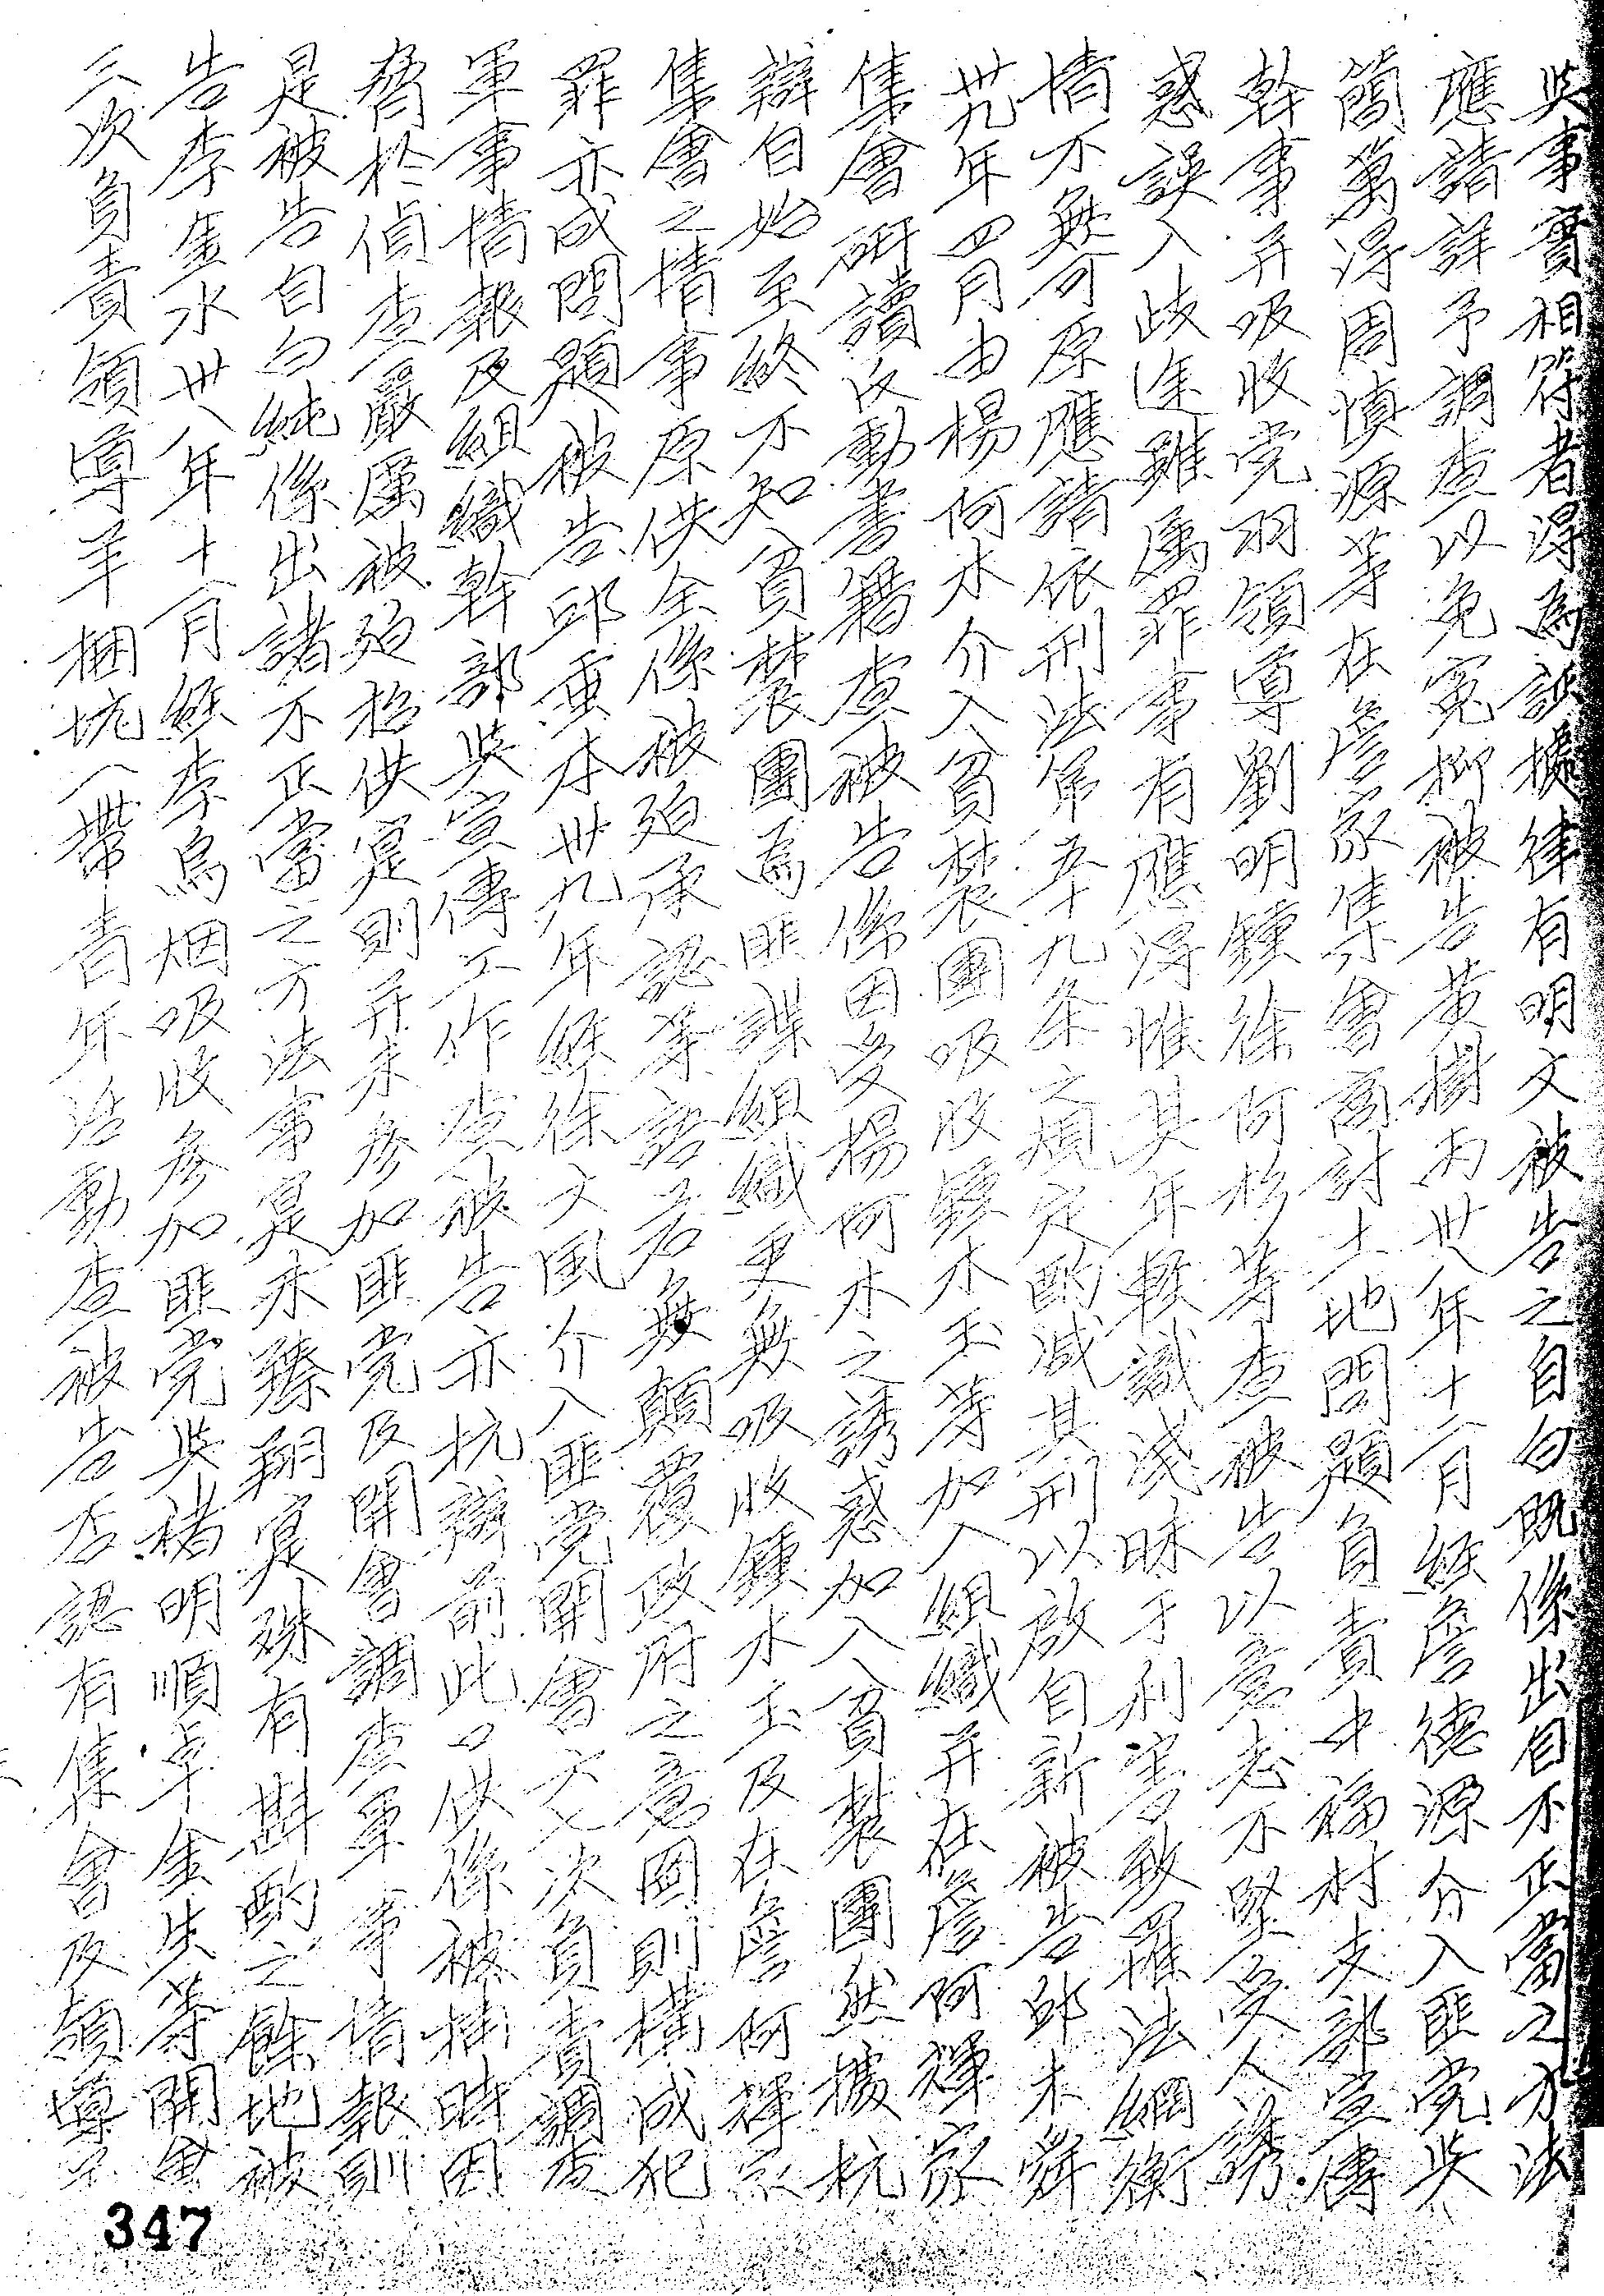 與事實相符者得為証據律有明文被告之自白既係出自不正當之方法
應請詳予調查以免冤抑被告黃樹丙卅八年十二月經詹德源介入匪党與
簡萬得周慎源等在詹家集會商討土地問題負責中福村支部宣傳
幹事并吸收党羽領導劉明鍾徐何松等查被告以意志不堅受人誘
惑誤入歧途雖属罪事有應得惟其年輕識淺昧于利害致罹法網衡
情不無可原應請依刑法第五十九条之規定酌減其刑以啟自新被告邱木舜
卅九年四月由楊何水介入貧農團吸收鍾水玉等加入組織并在詹阿禪家
集會研讀反動書籍查被告係因受楊阿木之誘惑加入貧農團然據抗
辯自始至終不知貧農團為匪諜組織更無吸收鍾水玉及在詹何禪家
集會之情事原供全係被迫承認等語若無顛覆政府之意圖則構成犯
罪亦成問題被告邱垂本卅九年經徐文風介入匪党開會六七次負責調查
軍事情報及組織幹部與宣傳工作查被告亦抗辯前此口供係被捕時因
脅於偵查嚴厲被迫招供寔則并未參加匪党及開會調查軍事情報則
是被告自白純係出諸不正當之方法事寔未臻翔寔殊有斟酌之餘地被
告李金水卅八年十一月經李烏烟吸收參加匪党與褚明順卓金生等開會
三次負責領導羊稠坑一帶青年活動查被告否認有集會及領導
347